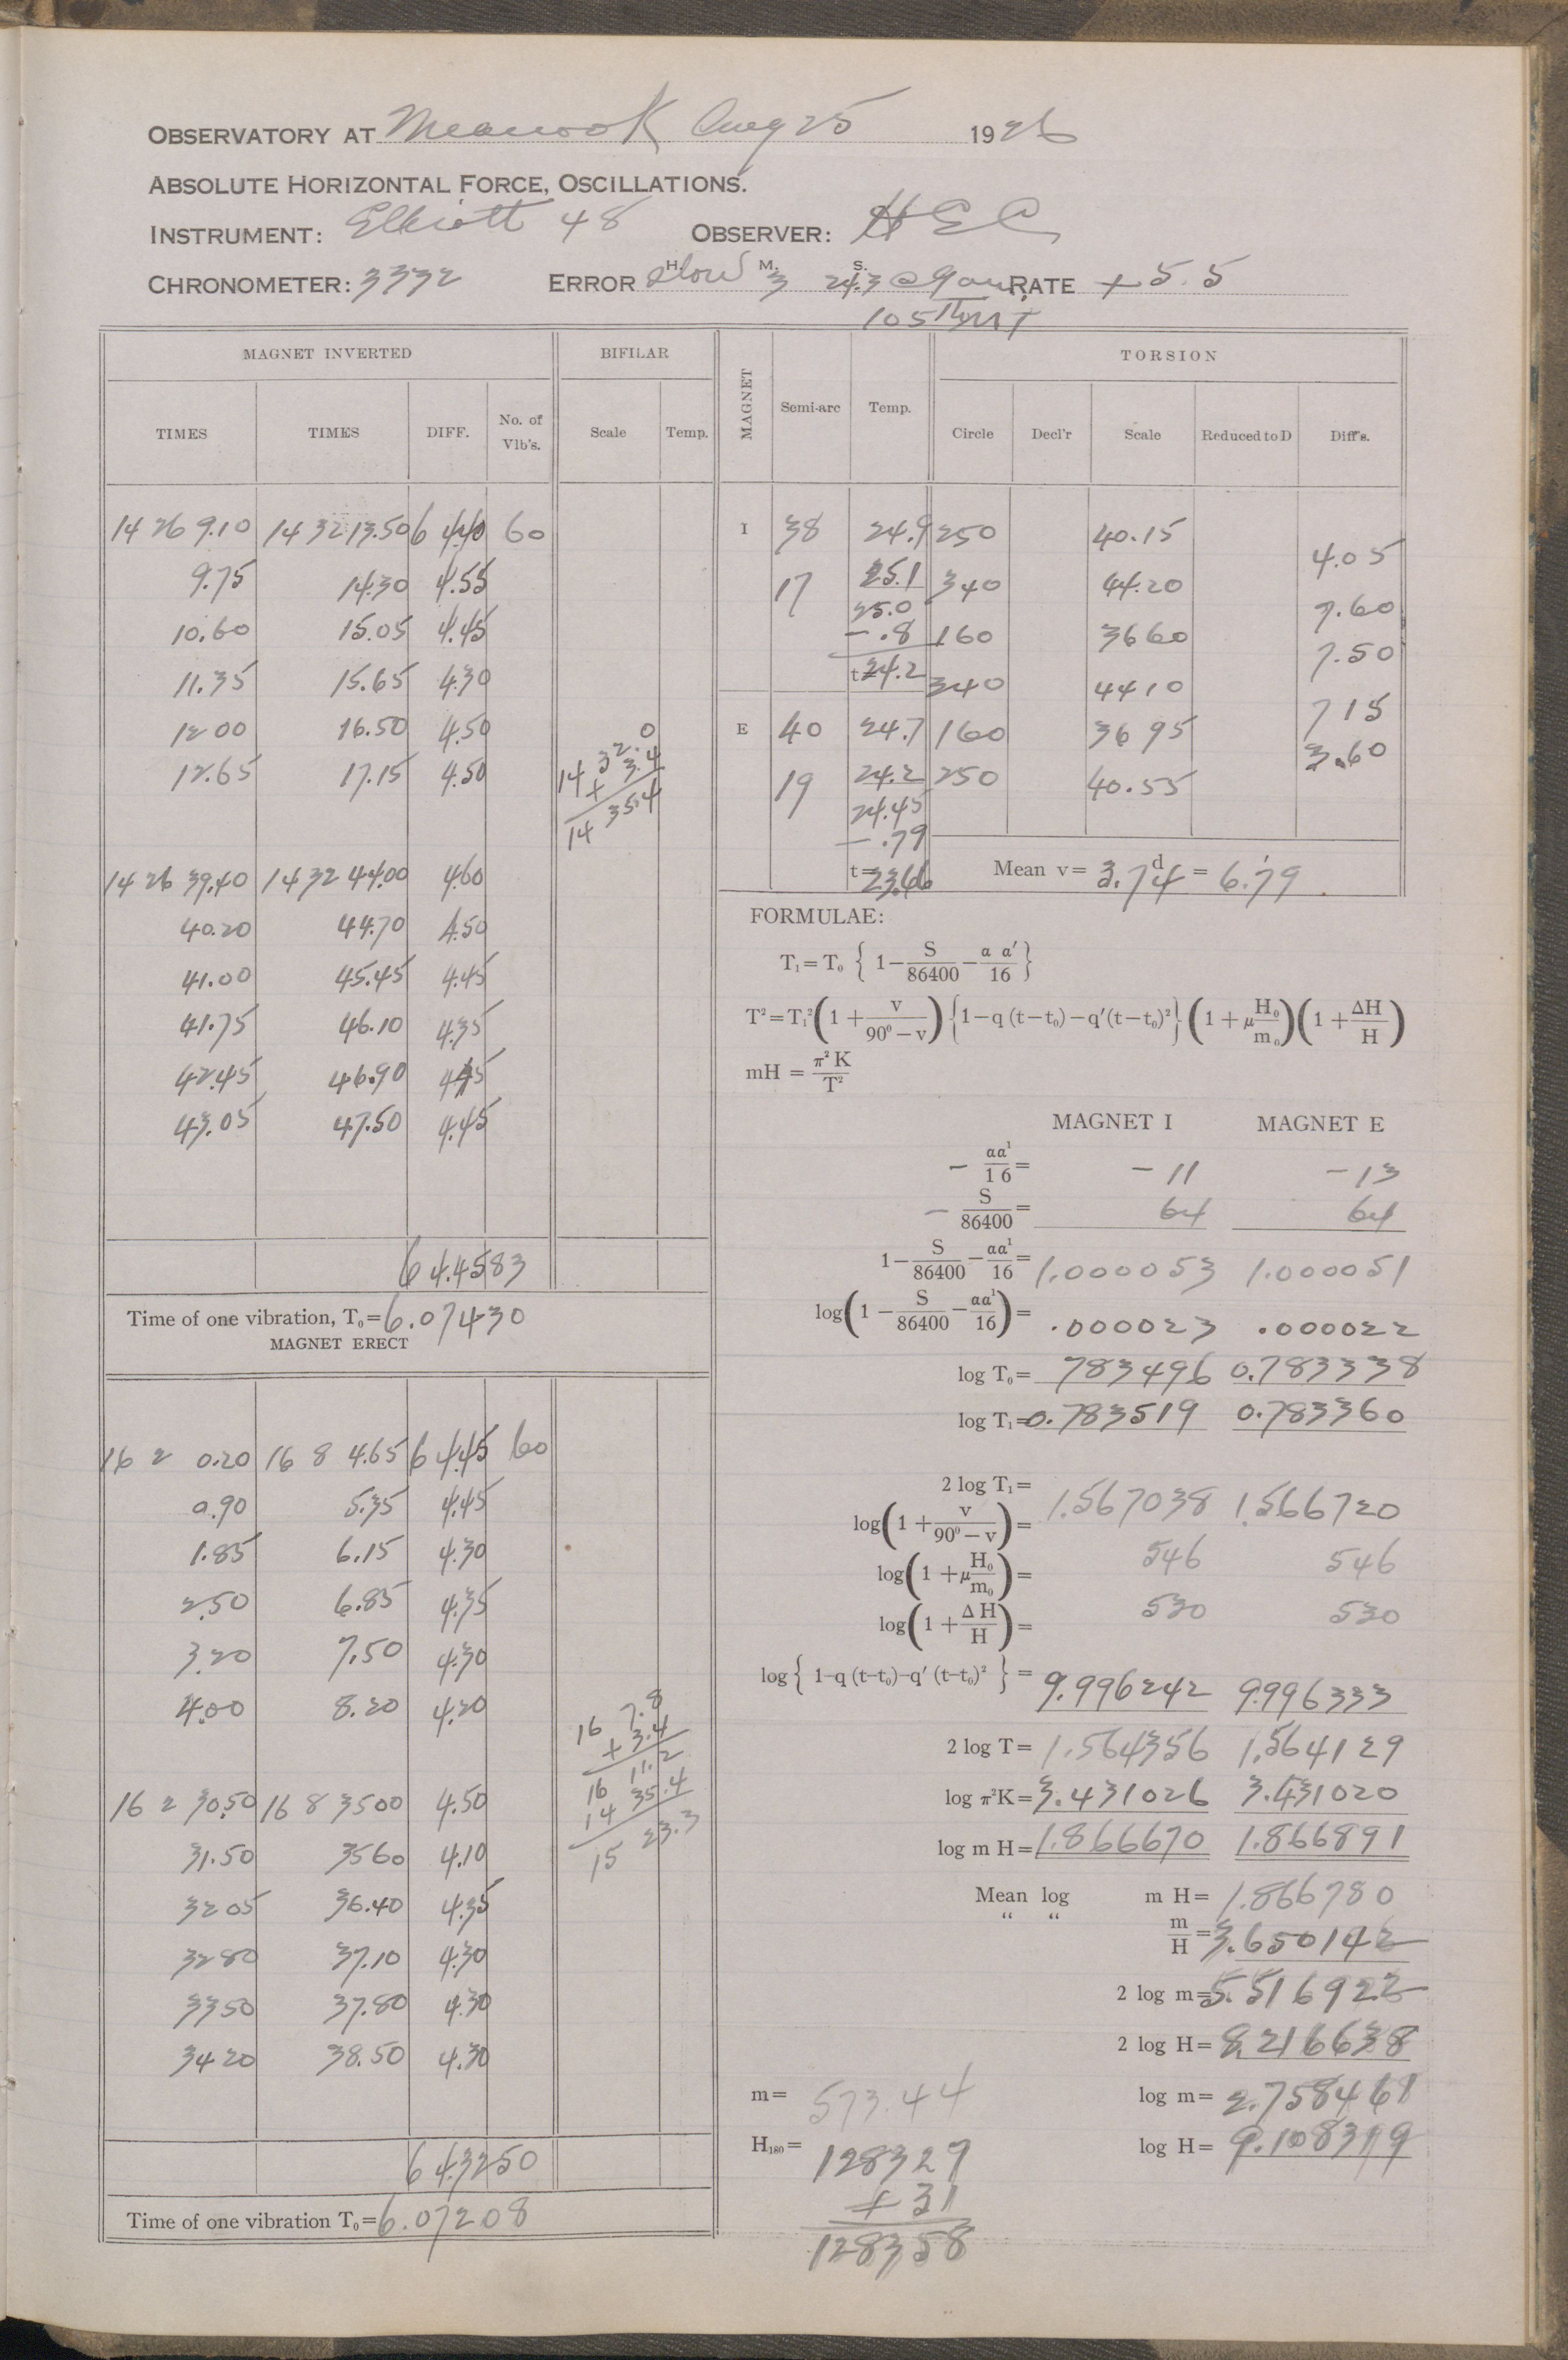 OBSERVATORY AT Meanook Aug 25 1926
ABSOLUTE HORIZONTAL FORCE, OSCILLATIONS.
INSTRUMENT: Elliott 48 OBSERVER: HEC
CHRONOMETER: 3332 ERROR Slow H. M. 3 S. 24.3 @ 9 am RATE + 5.5
105th MT
MAGNET INVERTED BIFILAR
TIMES TIMES DIFF. No. of Vib's. Scale Temp.
14 26 9.10 14 32 13.50 6 4.40 60
9.75 14.30 4.55
10.60 15.05 4.45
11.35 15.65 4.30
12 00 16.50 4.50
12.65 17.15 4.50
14 32.0
+ 3.4
14 35.4
14 26 39.40 14 32 44.00 4.60
40.20 44.70 4.50
41.00 45.45 4.45
41.75 46.10 4.35
42.45 46.90 4.45
43.05 47.50 4.45
6 4.4583
Time of one vibration, T₀= 6.07430
MAGNET ERECT
16 2 0.20 16 8 4.65 6 4.45 60
0.90 5.35 4.45
1.85 6.15 4.30
2.50 6.85 4.35
3.20 7.50 4.30
4.00 8.20 4.20
16 7.8
+ 3.4
16 11.2
14 35.4
15 23.3
16 2 30.50 16 8 35 00 4.50
31.50 35 60 4.10
32 05 36.40 4.35
32 80 37.10 4.30
33 50 37.80 4.30
34 20 38.50 4.30
6 4.3250
Time of one vibration T₀= 6.07208
MAGNET Semi-arc Temp. TORSION
Circle Decl'r Scale Reduced to D Diff's.
I 38 24.9 250 40.15
4.05
17 25.1 340 44.20
25.0 7.60
- .8 160 36 60
7.50
t= 24.2 340 44 10
7 15
E 40 24.7 160 36 95
3.60
19 24.2 250 40.55
24.45
- .79
t= 23.66 Mean v= 3.74 d = 6.'79
FORMULAE:
T₁=T₀ { 1−S/86400−a a′/16 }
T²=T₁²(1+v/90°−v){1−q (t−t₀)−q′(t−t₀)²}(1+μH₀/m₀)(1+ΔH/H)
mH = π²K/T²
MAGNET I MAGNET E
− aa¹/16= −11 −13
− S/86400= 64 64
1−S/86400−aa¹/16= 1.000053 1.000051
log(1−S/86400−aa¹/16)= .000023 .000022
log T₀= 783496 0.783338
log T₁= 0.783519 0.783360
2 log T₁= 1.567038 1.566720
log(1+v/90°−v)= 546 546
log(1+μH₀/m₀)= 530 530
log(1+ΔH/H)=
log{ 1−q (t−t₀)−q′ (t−t₀)² }= 9.996242 9.996333
2 log T= 1.564356 1.564129
log π²K= 3.431026 3.431020
log m H= 1.866670 1.866891
Mean log m H= 1.866780
“ “ m/H= 3.650142
2 log m= 5.516922
2 log H= 8.216638
m= 573.44 log m= 2.758461
H₁₈₀= 128329 log H= 9.108319
+ 31
128358